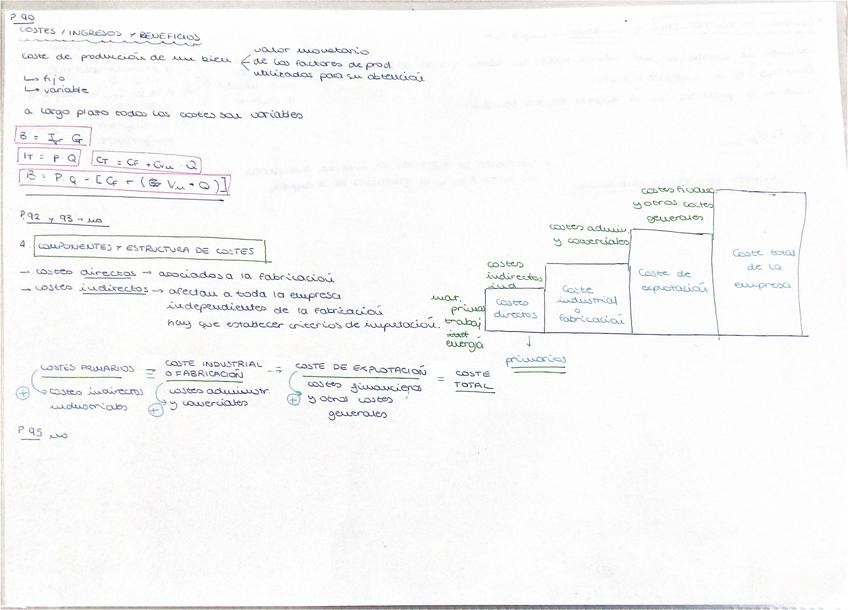 P 90
COSTES / INGRESOS Y BENEFICIOS
coste de produción de un bien
valor monetario
de los factores de prod
utilizados para su obtención
↳ fijo
↳ variable
a largo plazo todos los costes son variables
B = I - G
IT = P · Q
CT = CF + CVu · Q
B = P · Q - [CF + (Vu · Q)]
P. 92 y 93 → no
4. COMPONENTES Y ESTRUCTURA DE COSTES
→ costes directos → asociados a la fabricación
→ costes indirectos → afectan a toda la empresa
independientes de la fabricación
hay que establecer criterios de imputación.
COSTES PRIMARIOS = COSTE INDUSTRIAL O FABRICACIÓN = COSTE DE EXPLOTACIÓN = COSTE TOTAL
+ costes indirectos
industriales
+ costes administr.
y comerciales
+ costes financieros
y otros costes
generales
P 95 no
costes financ
y otros costes
generales
costes admin.
y comerciales
costes
indirectos
ind
mat.
prima
trabaj
energía
costes
directos
Coste
industrial
o
fabricación
Coste de
explotación
Coste total
de la
empresa
↓
primarios